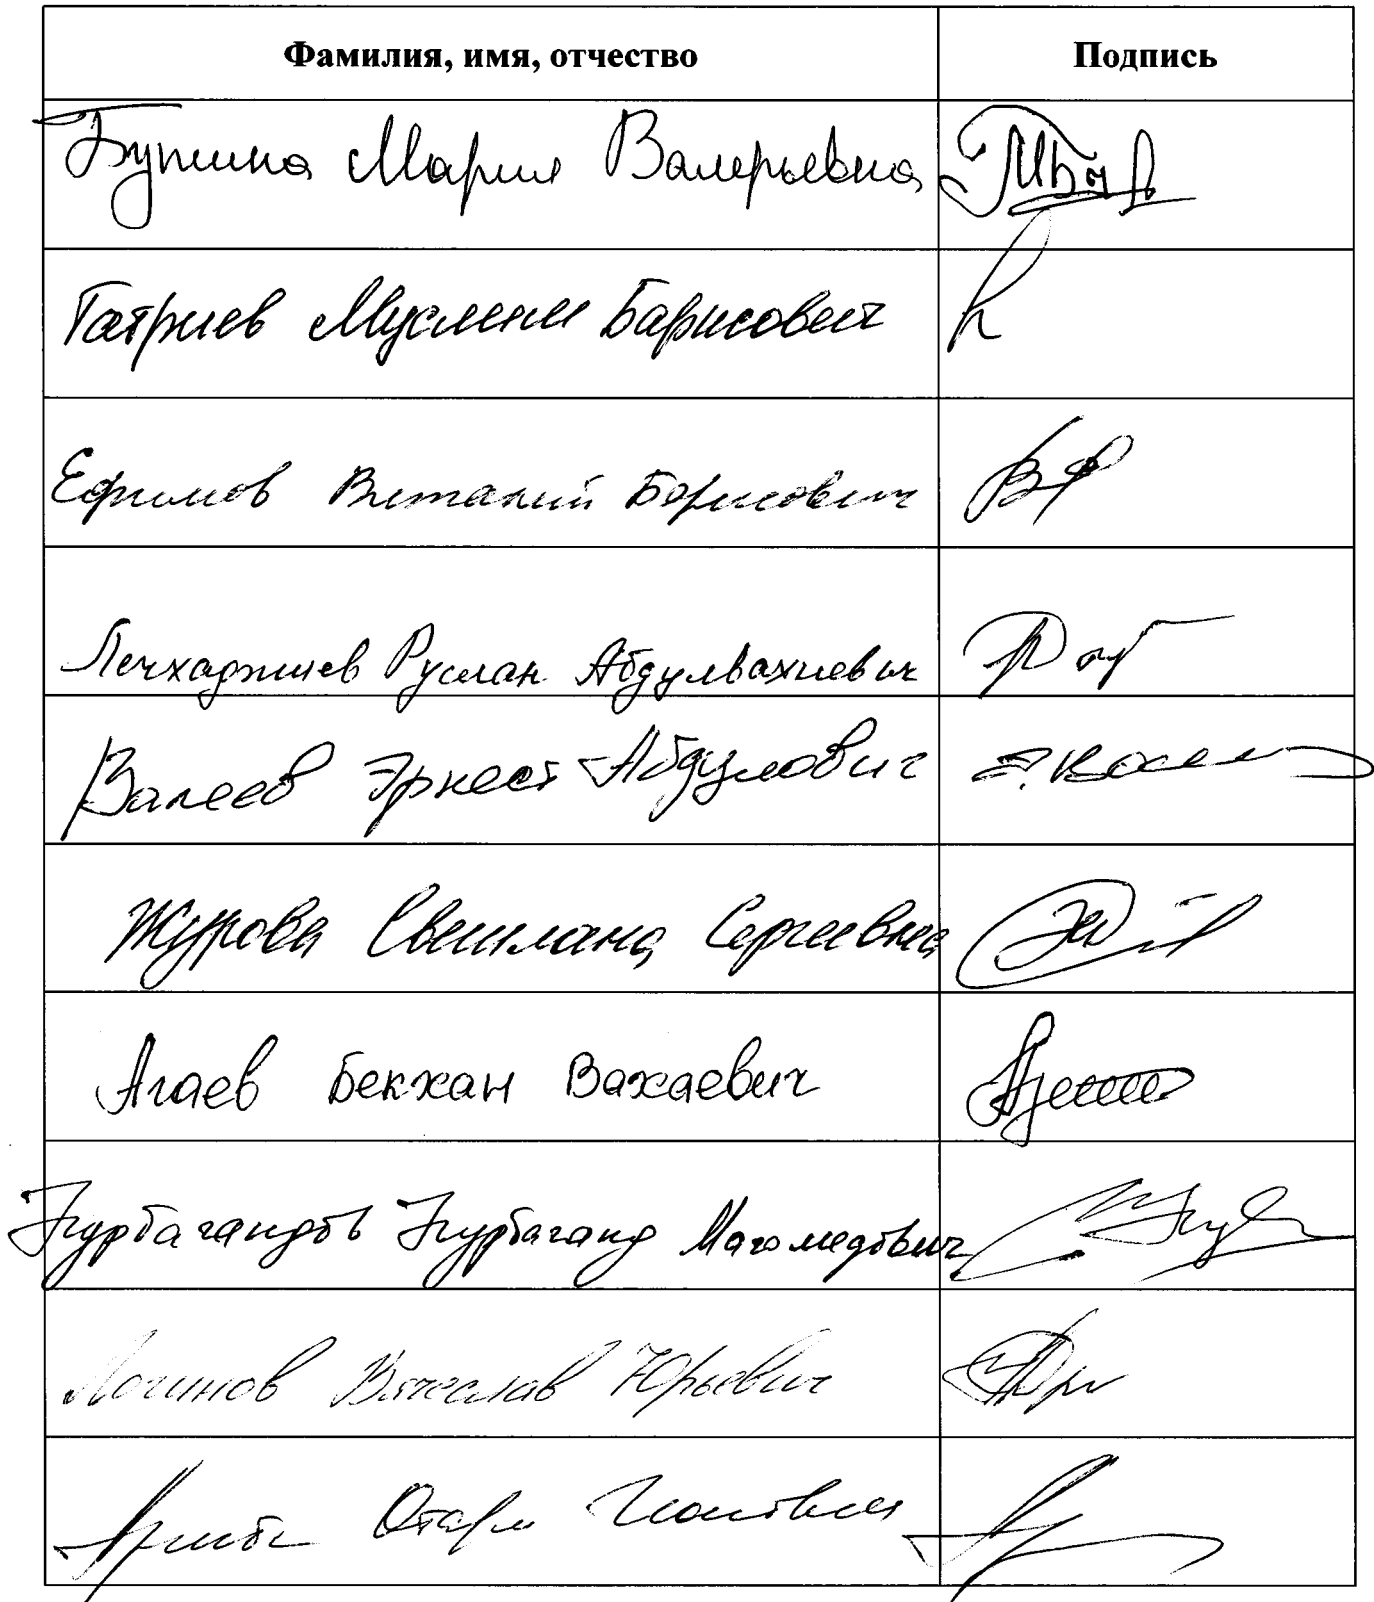 Фамилия, имя, отчество Подпись
Бутина Мария Валерьевна
Татриев Муслим Барисович
Ефимов Виталий Борисович
Лечхаджиев Руслан Абдулвахиевич
Валеев Эрнест Абдулович
Журова Светлана Сергеевна
Агаев Бекхан Вахаевич
Нурбагандов Нурбаганд Магомедович
Логинов Вячеслав Юрьевич
Отари